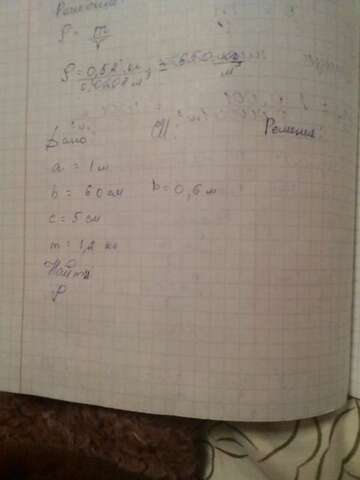 Решение:
ρ = m/V
ρ = 0,52 кг / 0,0008 м³ = 650 кг/м³
Дано: СИ: Решение:
a = 1 м
b = 60 см b = 0,6 м
c = 5 см
m = 1,2 кг
Найти
ρ